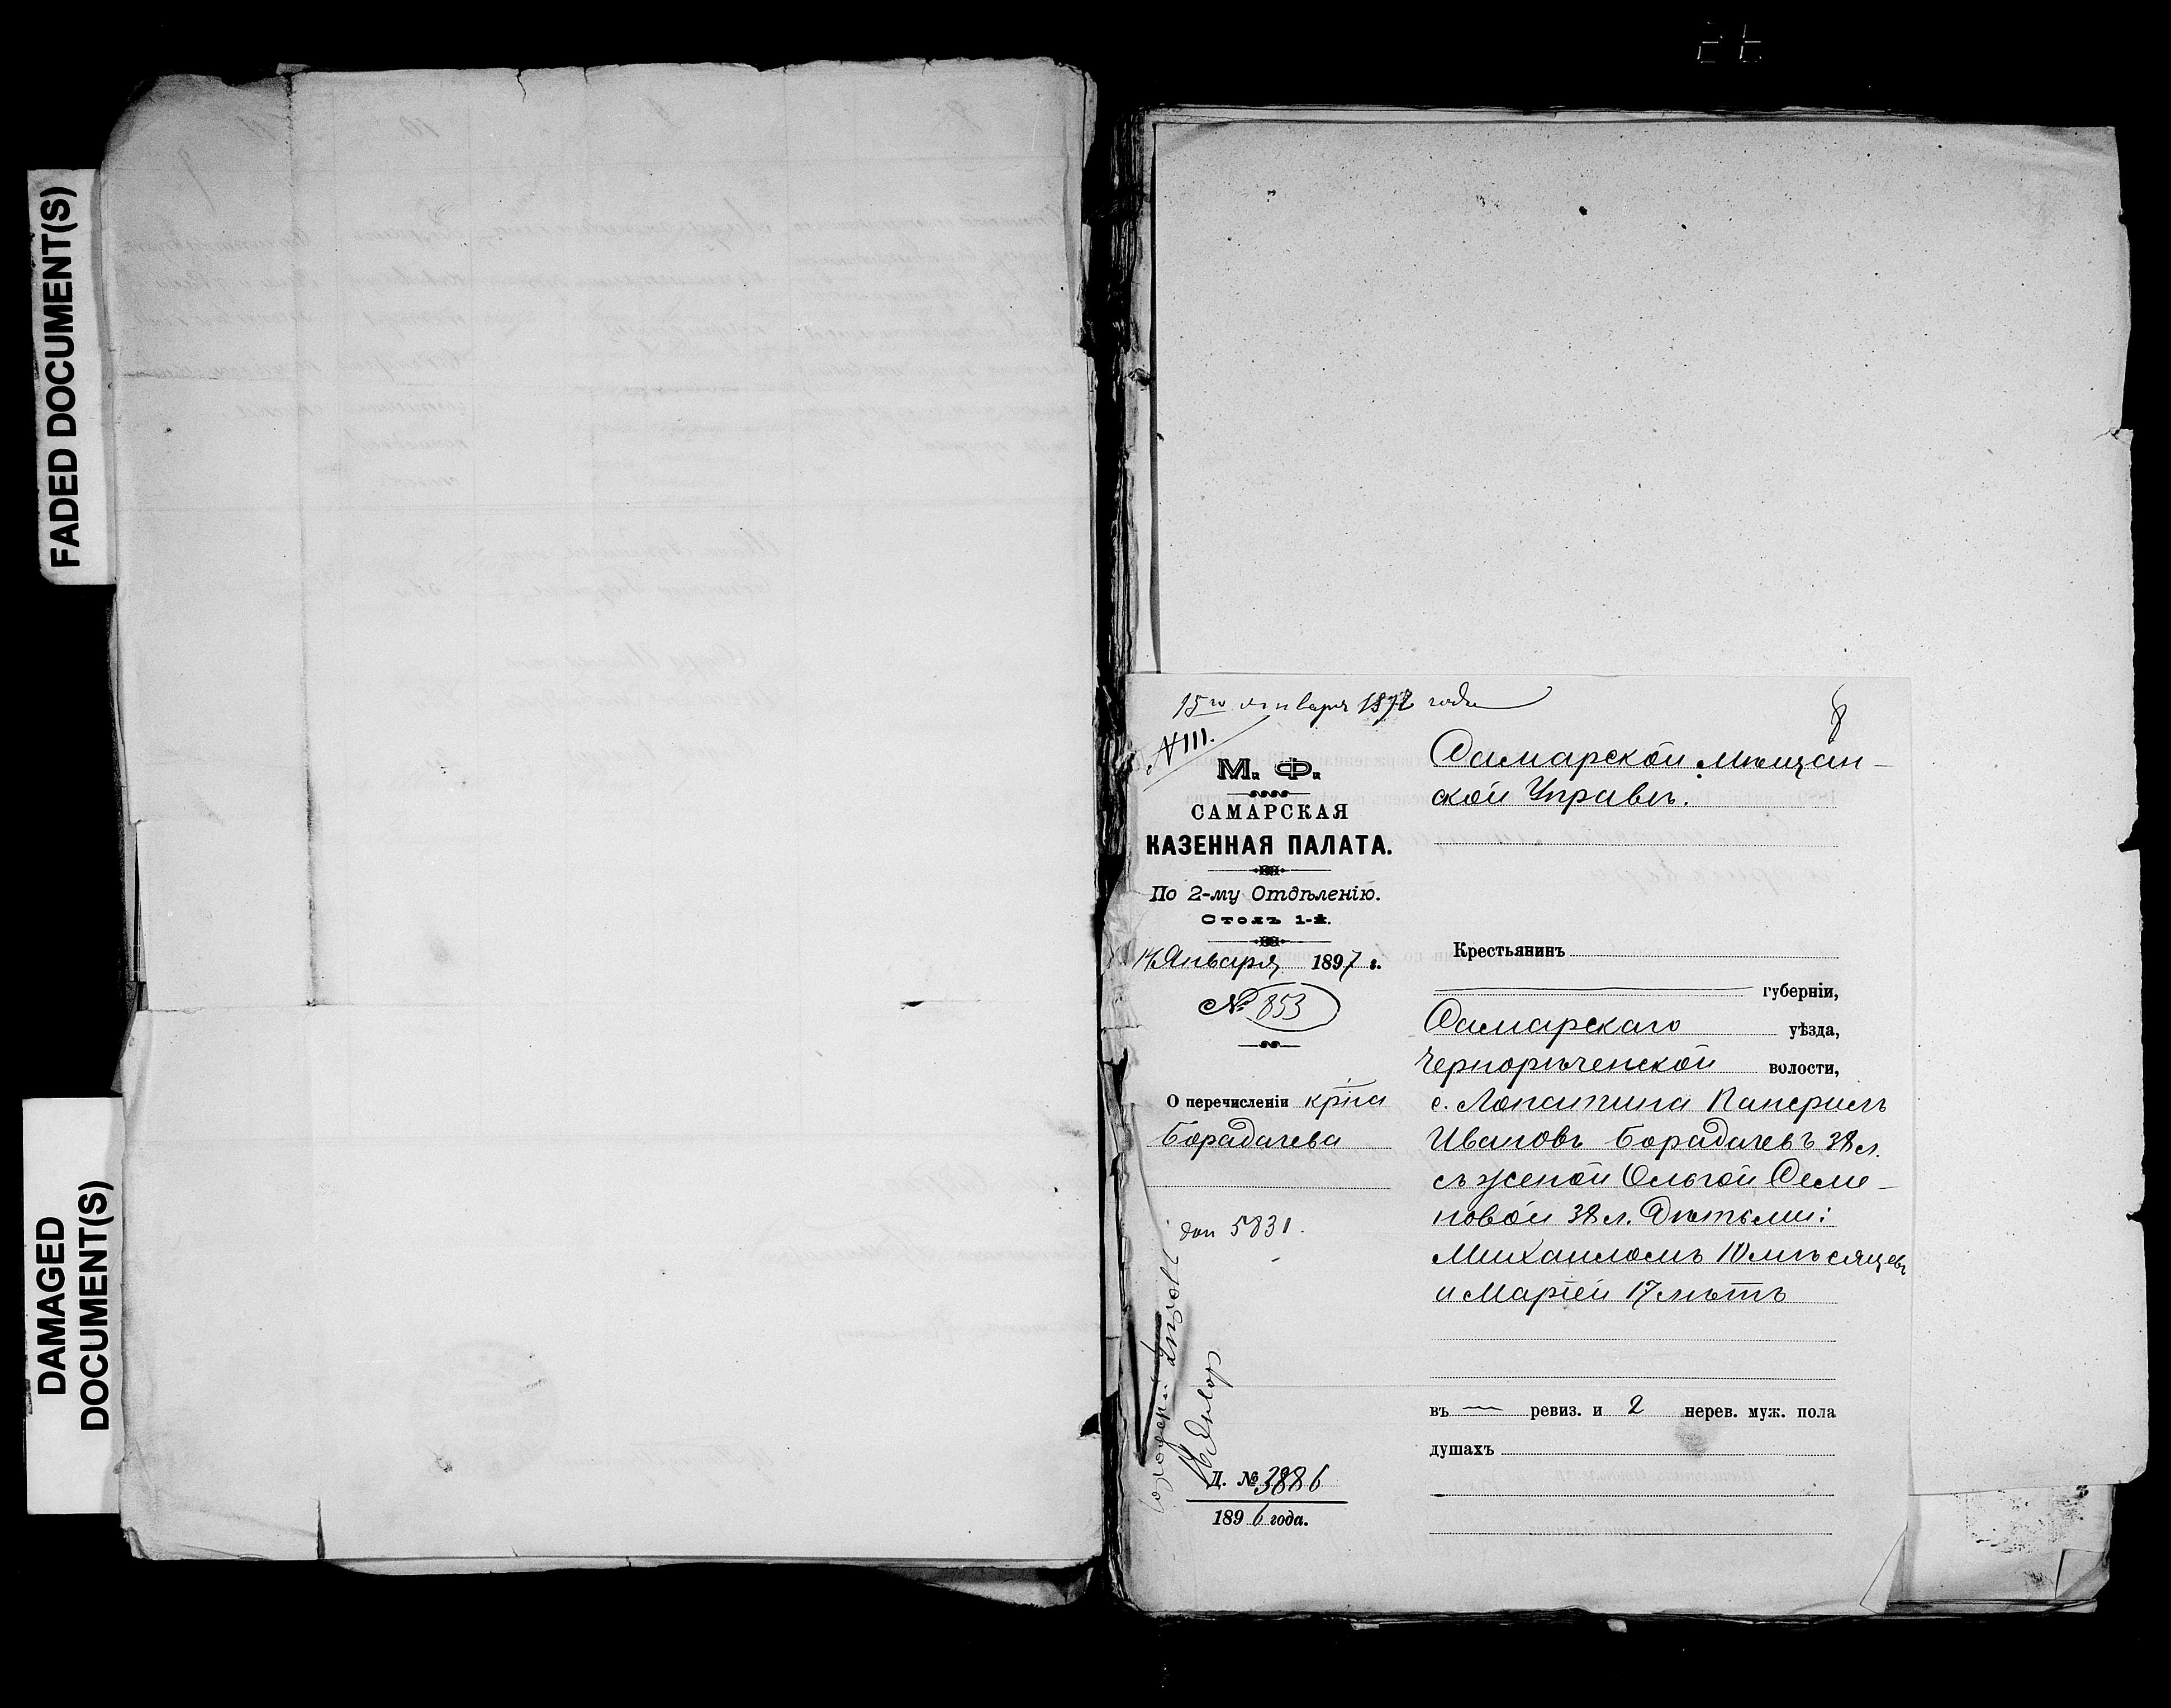 FADED DOCUMENT(S)
DAMAGED
DOCUMENT(S)
15го января 1897 года
8
№111.
М. Ф.
САМАРСКАЯ
КАЗЕННАЯ ПАЛАТА.
По 2-му Отдѣленію.
Столъ 1-й.
14 Января 1897 г.
№ 853
О перечисленіи кр-на
Борадачева
доп 5831.
Д. № 3886
1896 года.
Самарской Мѣщан-
ской Управѣ.
Крестьянинъ
губерніи,
Самарскаго уѣзда,
Чернорѣченской волости,
с. Лопатина
Ивановъ Борадачевъ 38 л.
съ женой Ольгой Семе-
новой 38 л. Дѣтьми:
Михаиломъ 10 мѣсяцевъ
и Маріей 17 лѣтъ
въ — ревиз. и 2 нерев. муж. пола
душахъ